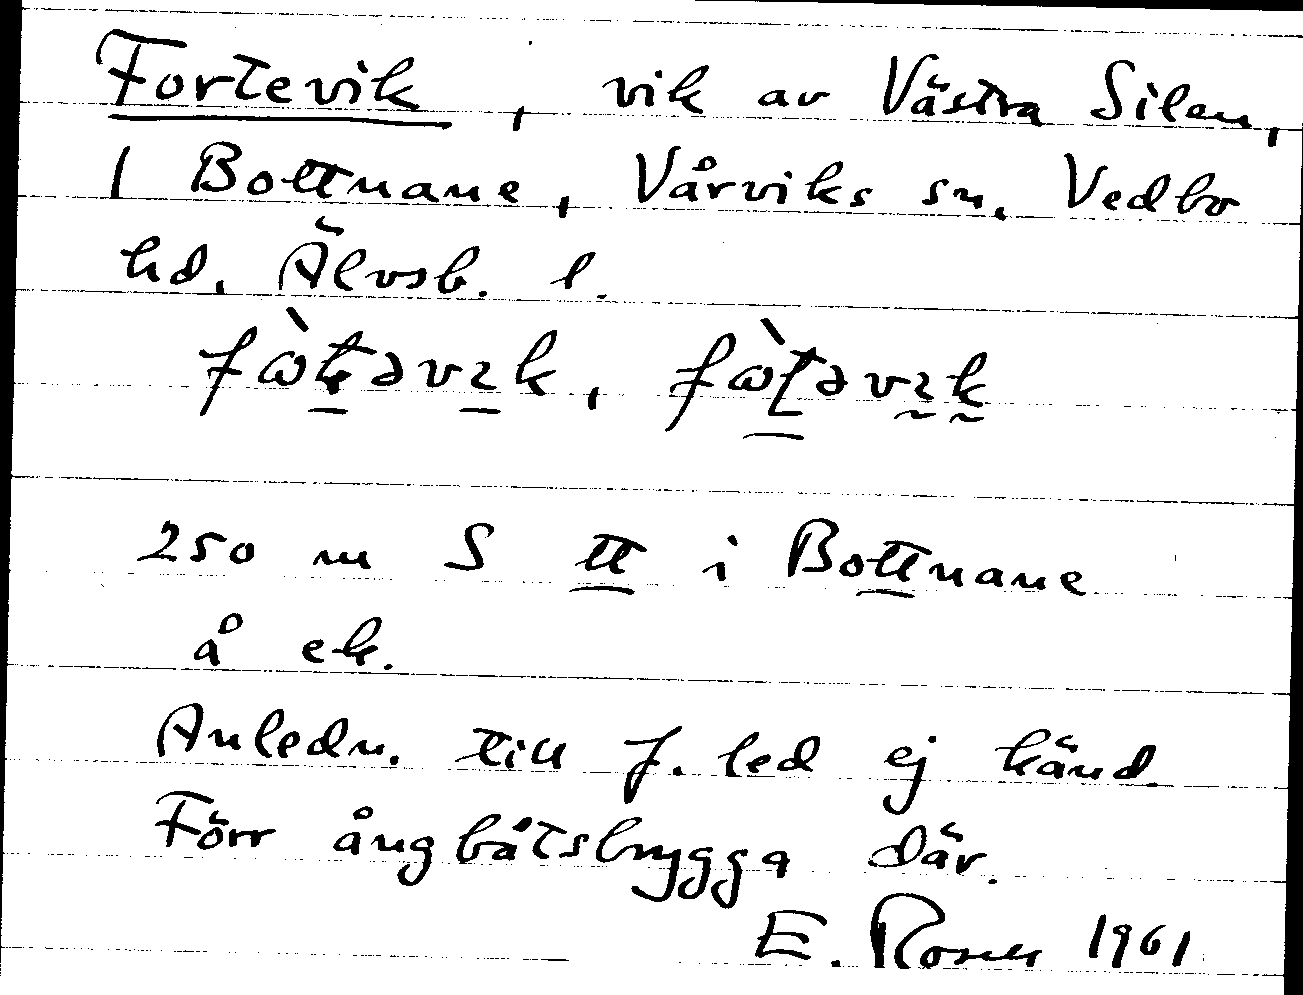 Fortevik, vik av Västra Silen,
1 Bottnane, Vårviks sn. Vedbo
hd. Älvsb. l.
250 m S tt i Bottnane
å ek.
Anledn. till f. led ej känd.
Förr ångbåtsbrygga där.
E. Rosell 1961